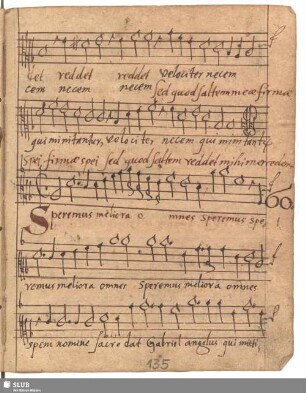 Cet reddet reddet velociter necem
cem necem necem sed quod saltem meæ firmæ
qui minitantur, velociter necem qui minitantur
spei, firmæ spei sed quod saltem reddet
60.
Speremus meliora omnes speremus spe,
remus meliora omnes speremus meliora omnes
spem nomine sacro dat Gabriel angelus qui
135
SLUB